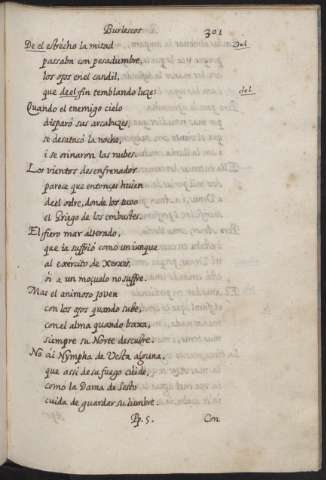 Burlescos 301
De el estrecho la mitad Del
passaba con pesadumbre,
los ojos en el candil,
que de el fin temblando luze: del
Quando el enemigo cielo
disparò sus arcabuzes,
se desatacò la noche,
i se orinaron las nubes.
Los vientos desenfrenados
parece que entonces huien
de el odre, donde los tuvo
el Griego de los embustes.
El fiero mar alterado,
que ia suffriò como iunque
al exercito de Xerxes,
oi a un moçuelo no suffre.
Mas el animoso joven
con los ojos quando sube,
con el alma quando baxa,
siempre su Norte descubre.
No ai Nympha de Vesta alguna,
que assi de su fuego cuide,
como la Dama de Sesto
cuida de guardar su lumbre.
Pp. 5. Con